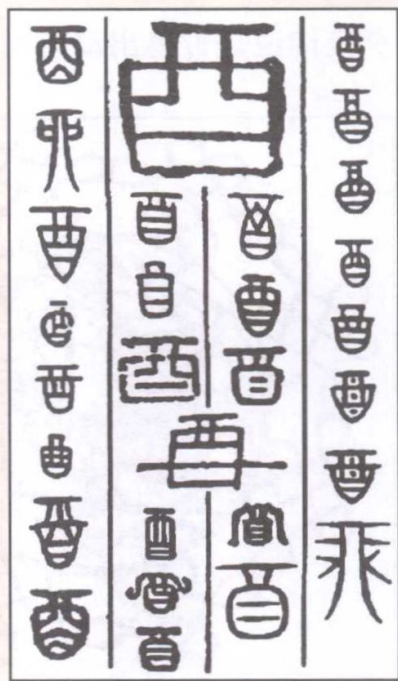 酉酉酉酉酉酉酉
酉
酉酉酉
酉酉酉
酉
酉酉
酉酉酉
酉丣酉酉酉酉酉酉